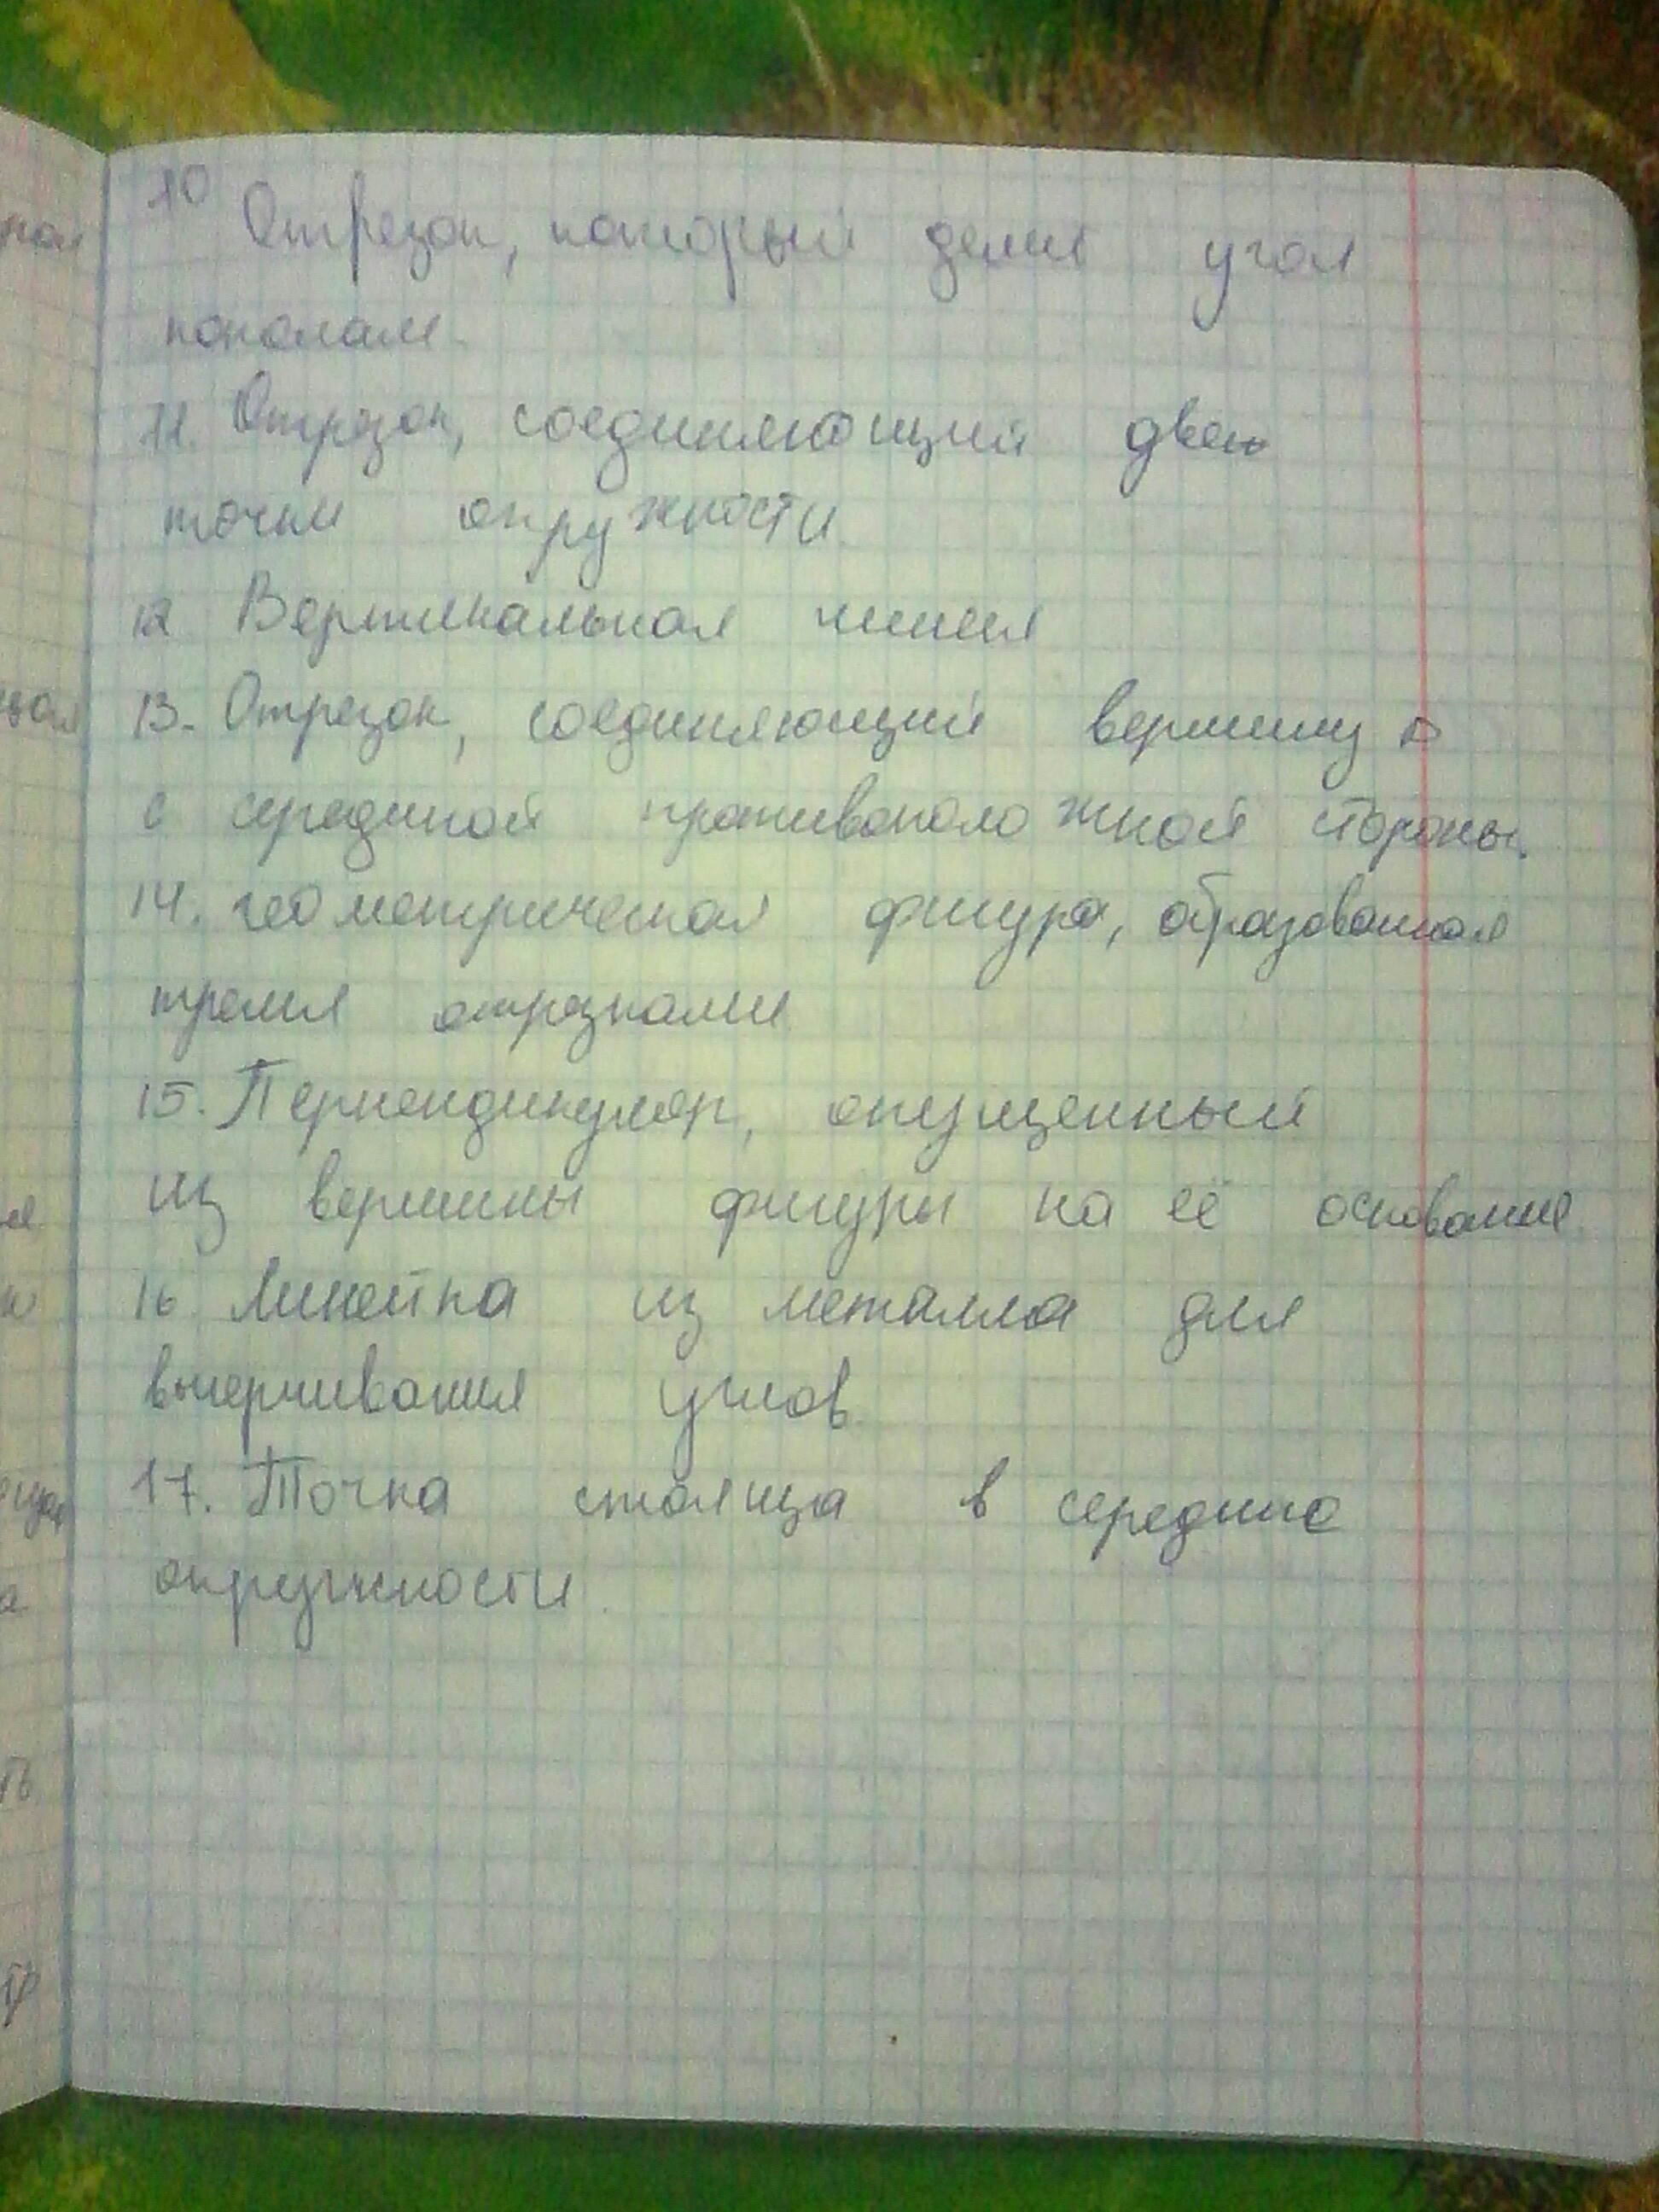 10 Отрезок, который делит угол
пополам.
11. Отрезок, соединяющий две
точки окружности
12 Вертикальная линия
13. Отрезок, соединяющий вершину
с серединой противоположной стороны.
14. геометрическая фигура, образованная
тремя отрезками
15. Перпендикуляр, опущенный
из вершины фигуры на её основание.
16 Линейка из металла для
вычерчивания углов.
17. Точка стоящая в середине
окружности.